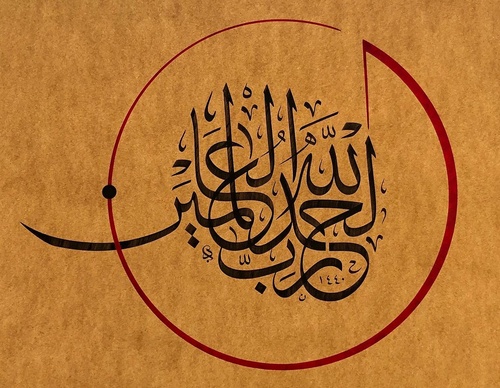 الحمد لله رب العالمين
١٤٤٠